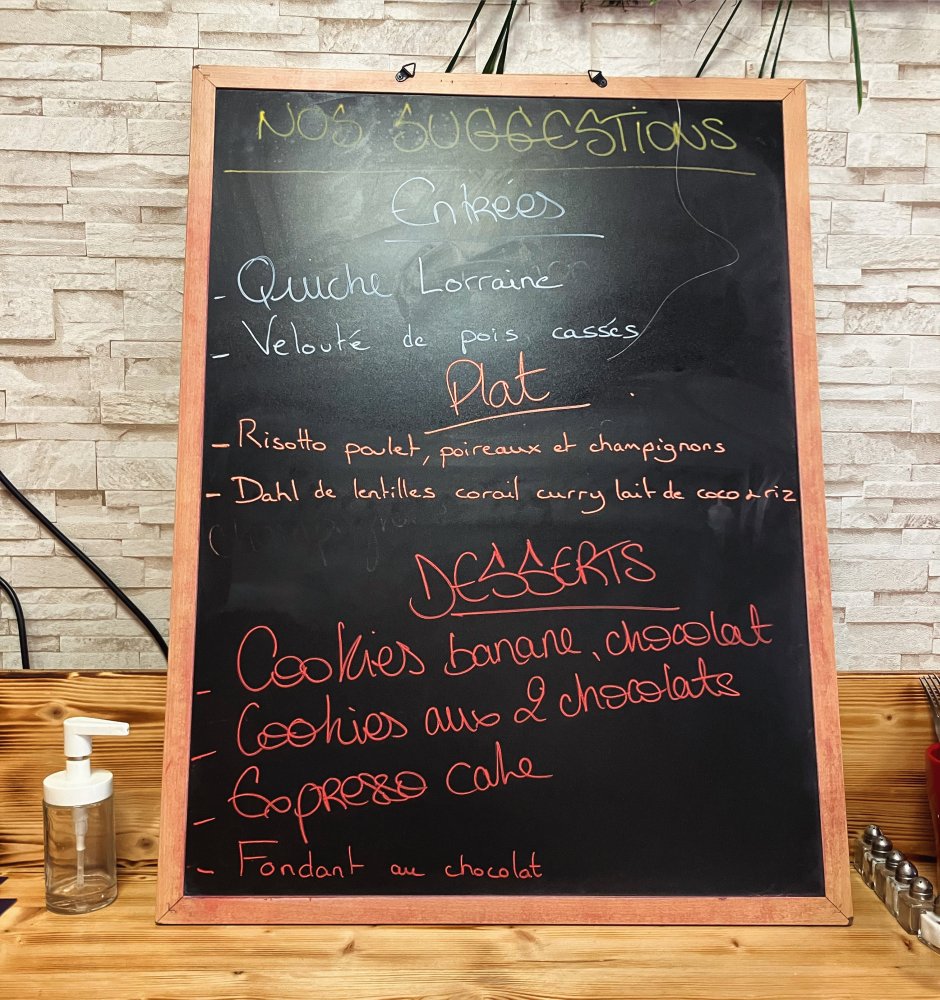 NOS SUGGESTIONS
Entrées
- Quiche Lorraine
- Velouté de pois cassés
Plat
- Risotto poulet, poireaux et champignons
- Dahl de lentilles corail curry lait de coco & riz
DESSERTS
- Cookies banane, chocolat
- Cookies aux 2 chocolats
- Expresso cake
- Fondant au chocolat